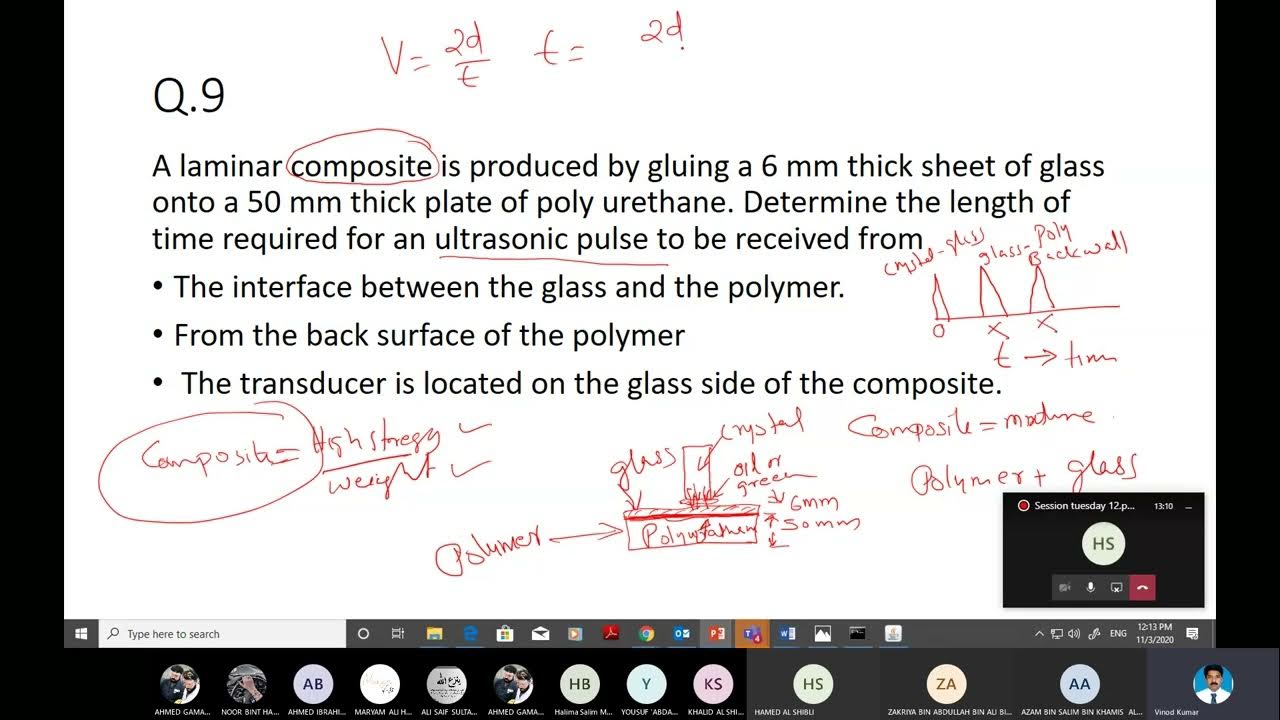 V = 2d/t t = 2d
Q.9
A laminar composite is produced by gluing a 6 mm thick sheet of glass
onto a 50 mm thick plate of poly urethane. Determine the length of
time required for an ultrasonic pulse to be received from
crystal-glass
glass-poly
Backwall
• The interface between the glass and the polymer.
0 x x
• From the back surface of the polymer
t → time
• The transducer is located on the glass side of the composite.
Composite =
weight
crystal
Composite = mixture
glass
oil or
green
Polymer + glass
6mm
50mm
Polymer
Session tuesday 12.p...
13:10
HS
Type here to search
ENG
12:13 PM
11/3/2020
AB
HB
Y
KS
HS
ZA
AA
AHMED GAMA...
NOOR BINT HA...
AHMED IBRAHI...
MARYAM ALI H...
ALI SAIF SULTA...
AHMED GAMA...
Halima Salim M...
YOUSUF 'ABDA...
KHALID AL SHI...
HAMED AL SHIBLI
ZAKRIYA BIN ABDULLAH BIN ALI BI...
AZAM BIN SALIM BIN KHAMIS AL...
Vinod Kumar